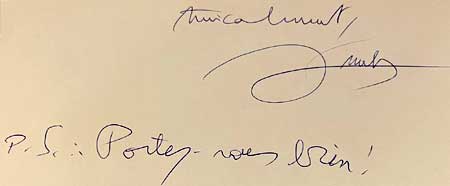 Amicalement,
P.S.: Portez-vous bien!